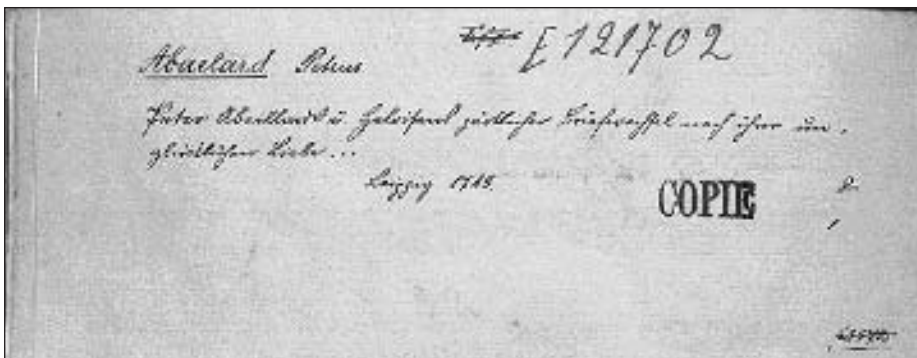 [121702
Abaelard Petrus
Peter Abaellards u. Heloisens zärtlicher Briefwechsel nach ihrer un-
glücklichen Liebe...
Leipzig
COPIE
8.